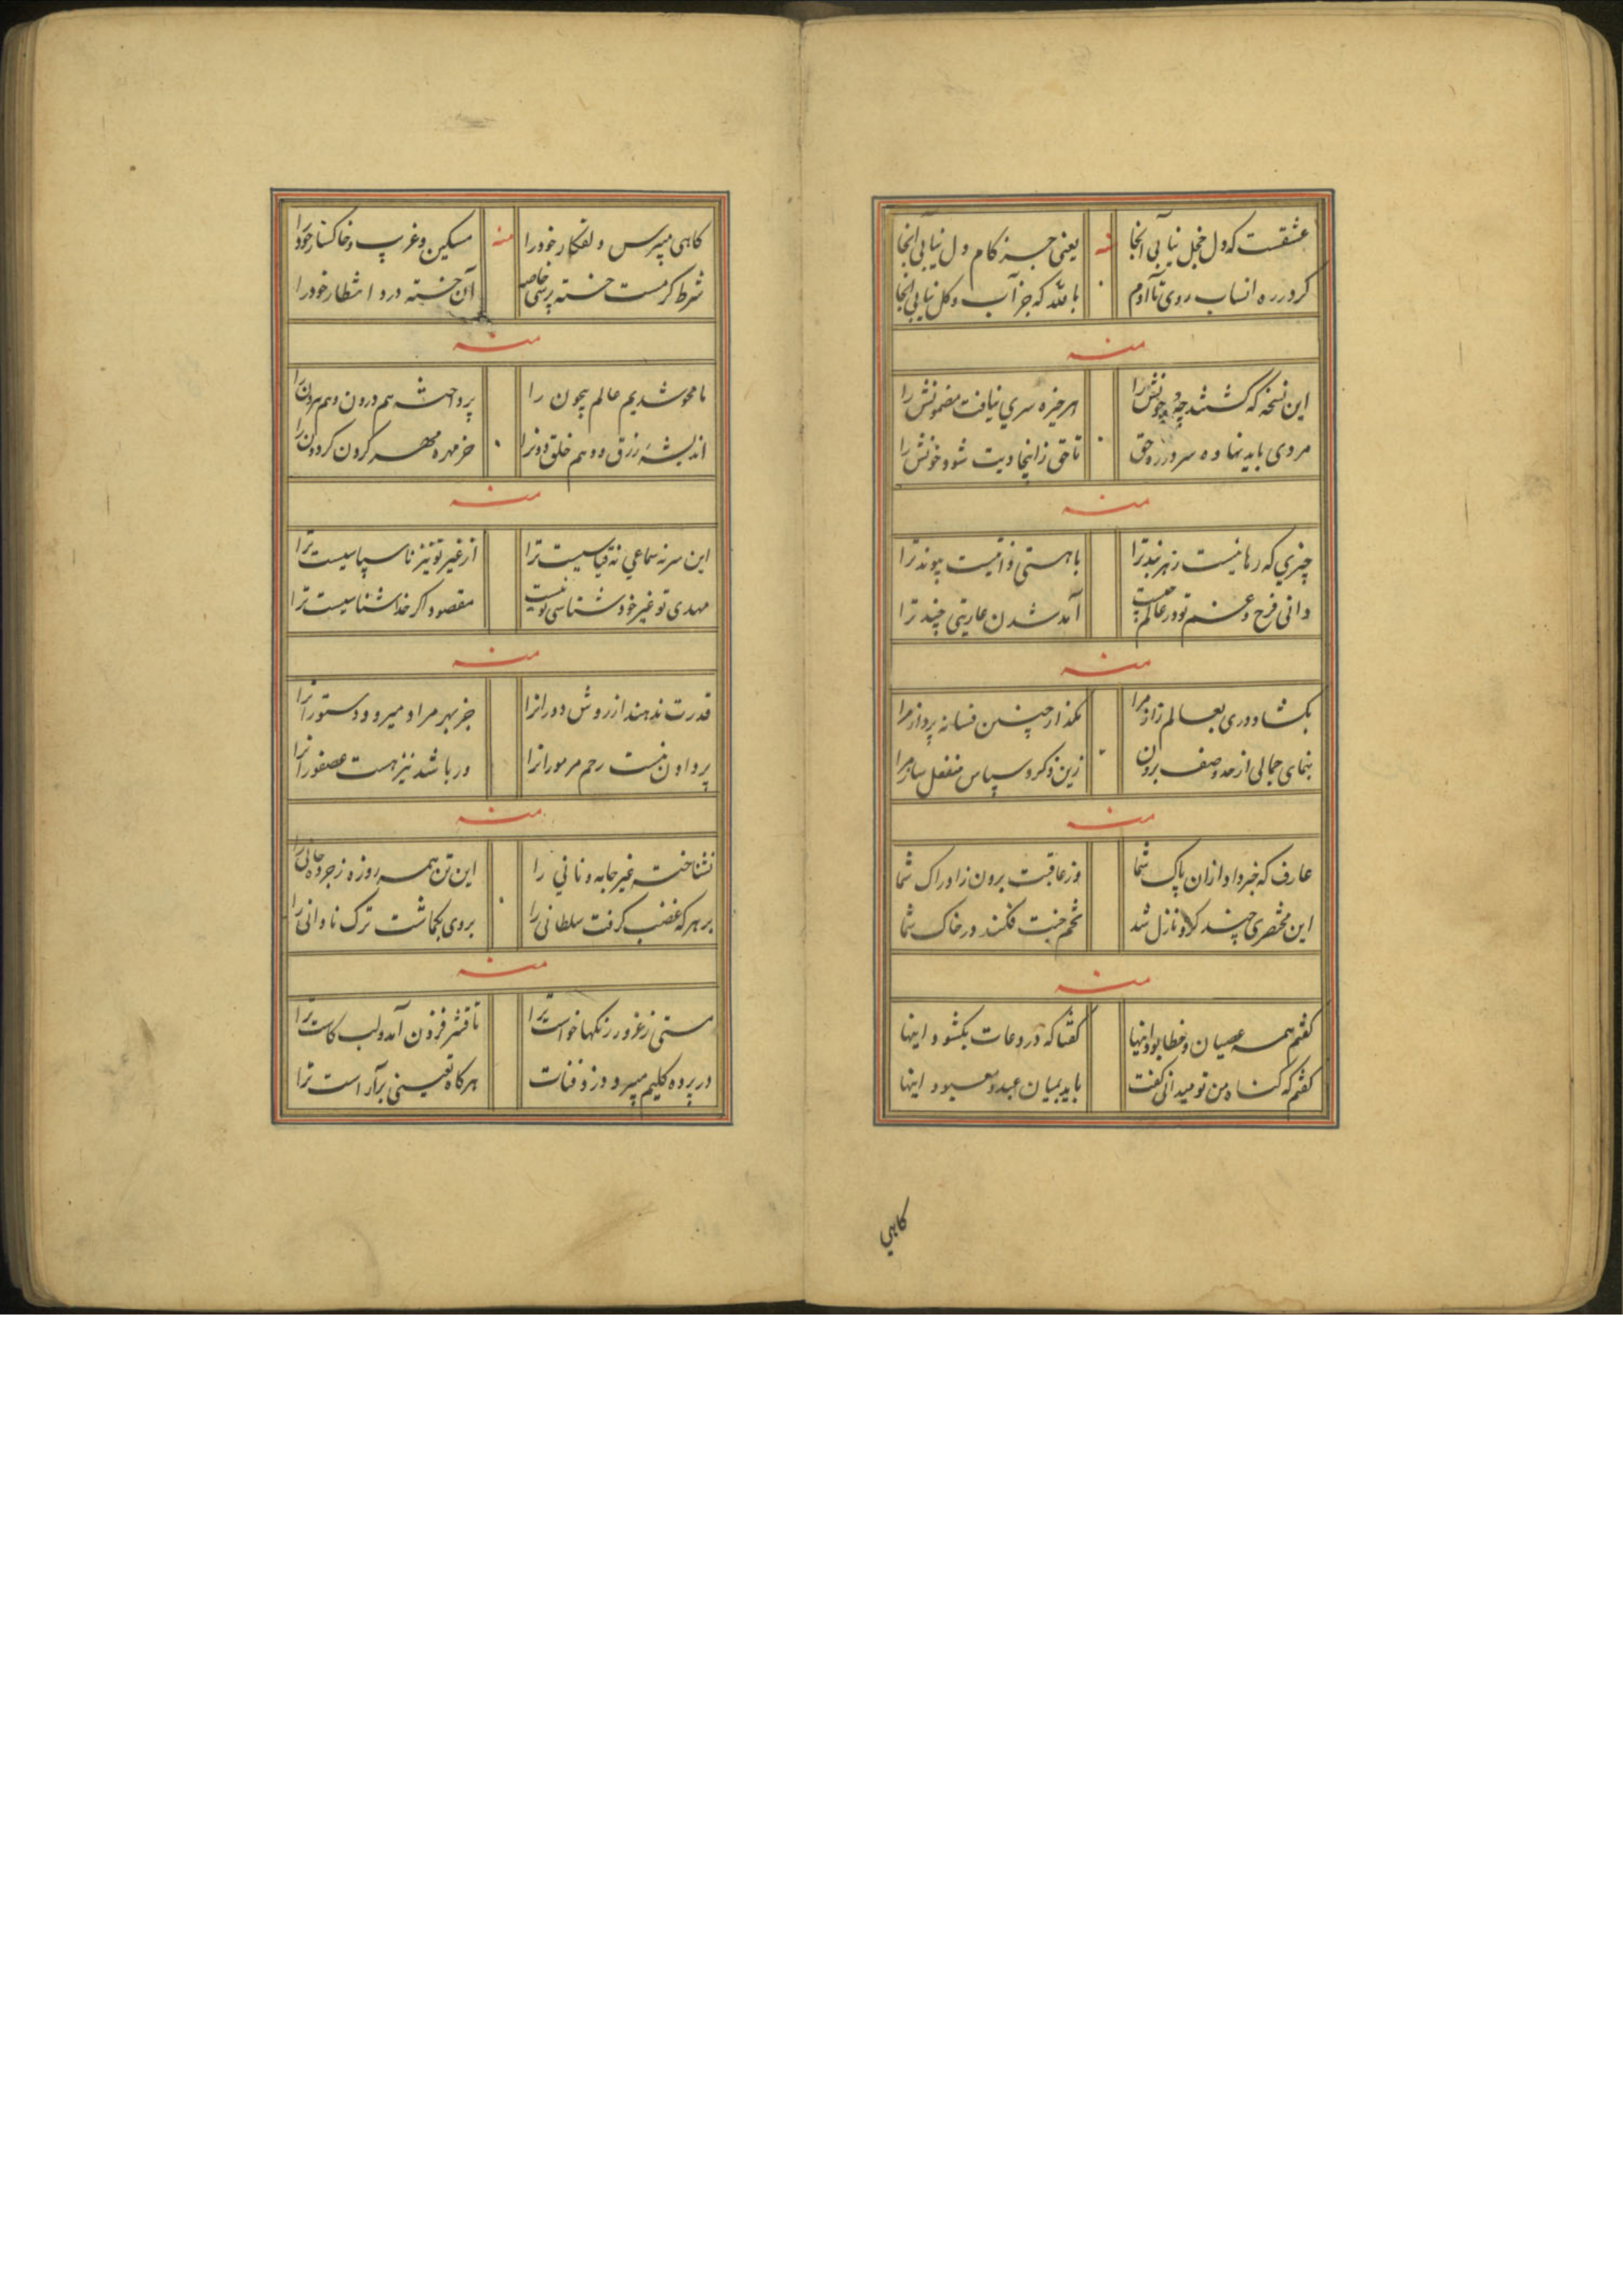 عشقست که دل خجل نیابی آنجا منه یعنی جز کام دل نیابی آنجا
کر در ره انساب روی تا آدم بالله که جز آب و کل نیابی آنجا
منه
این نسخه که کشتند چه و چونش را هر خیره سری نیافت مضمونش را
مردی باید نهاده سر در ره حق تا حق زانجا دیت شود خونش را
منه
چیزی که رها نیست ز هر بند ترا با هستی ذاتیست پیوند ترا
دانی فرح و غم تو در عالم چیست آمد شدن عاریتی چند ترا
منه
بکشا دوری بعالم راز مرا بکذار چنین فسانه پرداز مرا
بنمای جمالی از حد وصف برون زین ذکر و سپاس منفعل ساز مرا
منه
عارف که خبر داد از آن پاک شما وز عاقبت برون ز ادراک شما
این مختصری چند کلاو نازل شد تخم جنت فکند در خاک شما
منه
کفتم همه عصیان و خطا بود اینها کفتا که در دعات بکشود اینها
کفتم که کناه من تو میدانی کفت باید بمیان عبد و معبود اینها
کاهی
کاهی میپرس دلفکار خود را منه مسکین و غریب و خاکسار خود را
شرط کرمست خسته پرسی خاصه آن خسته درد انتظار خود را
منه
ما محو شدیم عالم بیچون را پرداخته هم درون و هم بیرون را
اندیشه رزق و وهم خلق دون را خرمهره مهره کردن کردون را
منه
این سر نه سماعی نه قیاسیست ترا از غیر تو نیز ناسپاسیست ترا
مهدی تو غیر خود شناسی تو نیست مقصود اکر خدا شناسیست ترا
منه
قدرت ندهند از روش دورانرا جز بهر مراد میر و دستورانرا
پروا و نیست رحم مر مورانرا ور باشد نیز هست عصفورانرا
منه
نشناخته غیر جامه و نانی را این تن همه روزه زجر ده جانی را
بر هر که غضب کرفت سلطانی را بروی بکماشت ترک نادانی را
منه
مستی ز غرور رنکها خواست ترا تا قشر فزون آمد و لب کاست ترا
در پرده کلیم میبرد دزد فنات هر کاه تعینی برآراست ترا